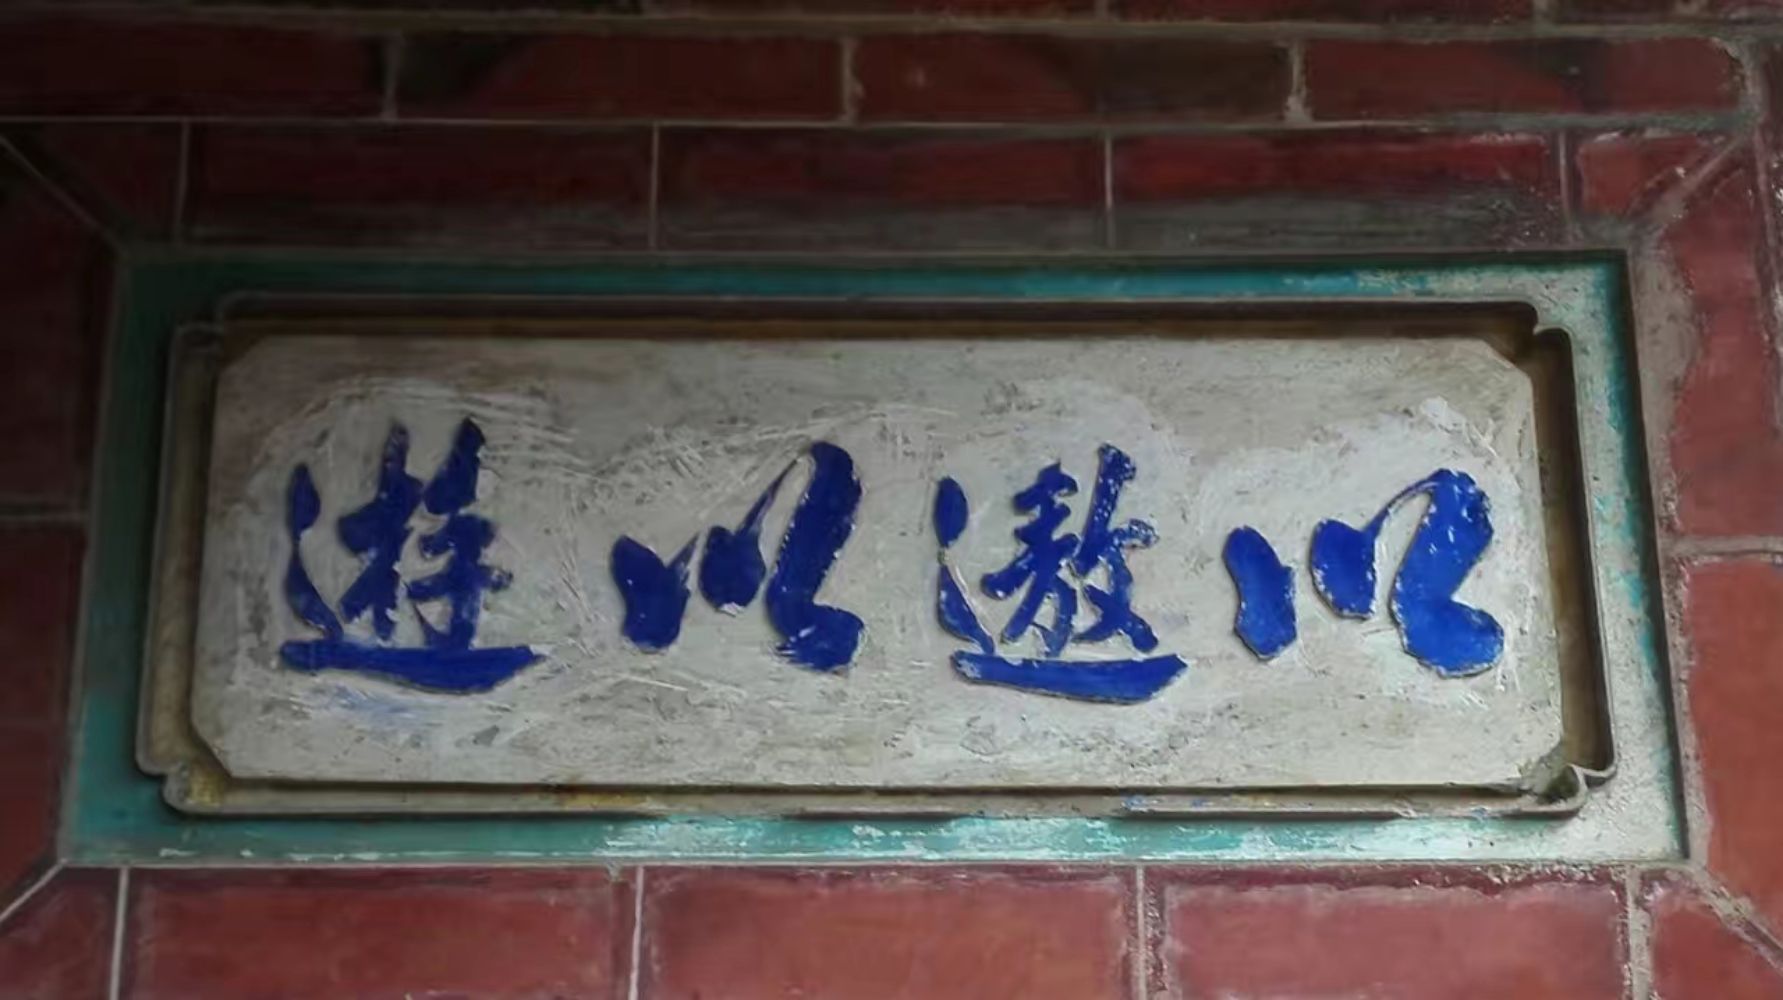 以遨以遊